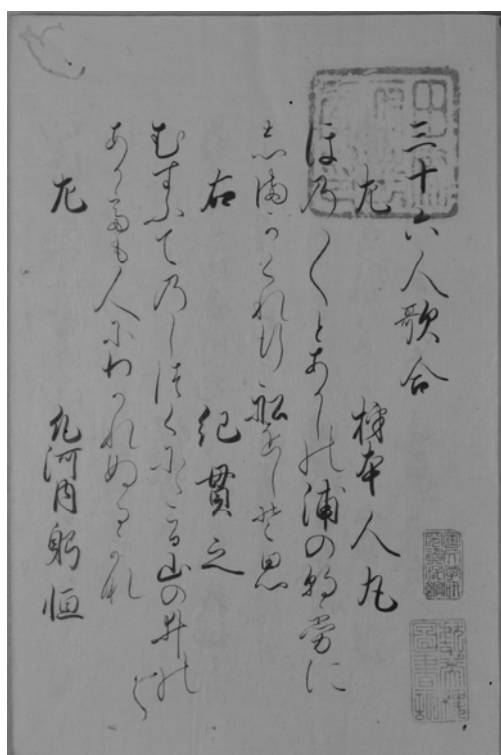 三十六人歌合
左　柿本人丸
ほの〱とあかしの浦の朝霧に
志満かくれ行舩をしそ思
右　紀貫之
むすふてのしつくにゝこる山の井の
あかても人にわかれぬるかな
左　凡河内躬恒